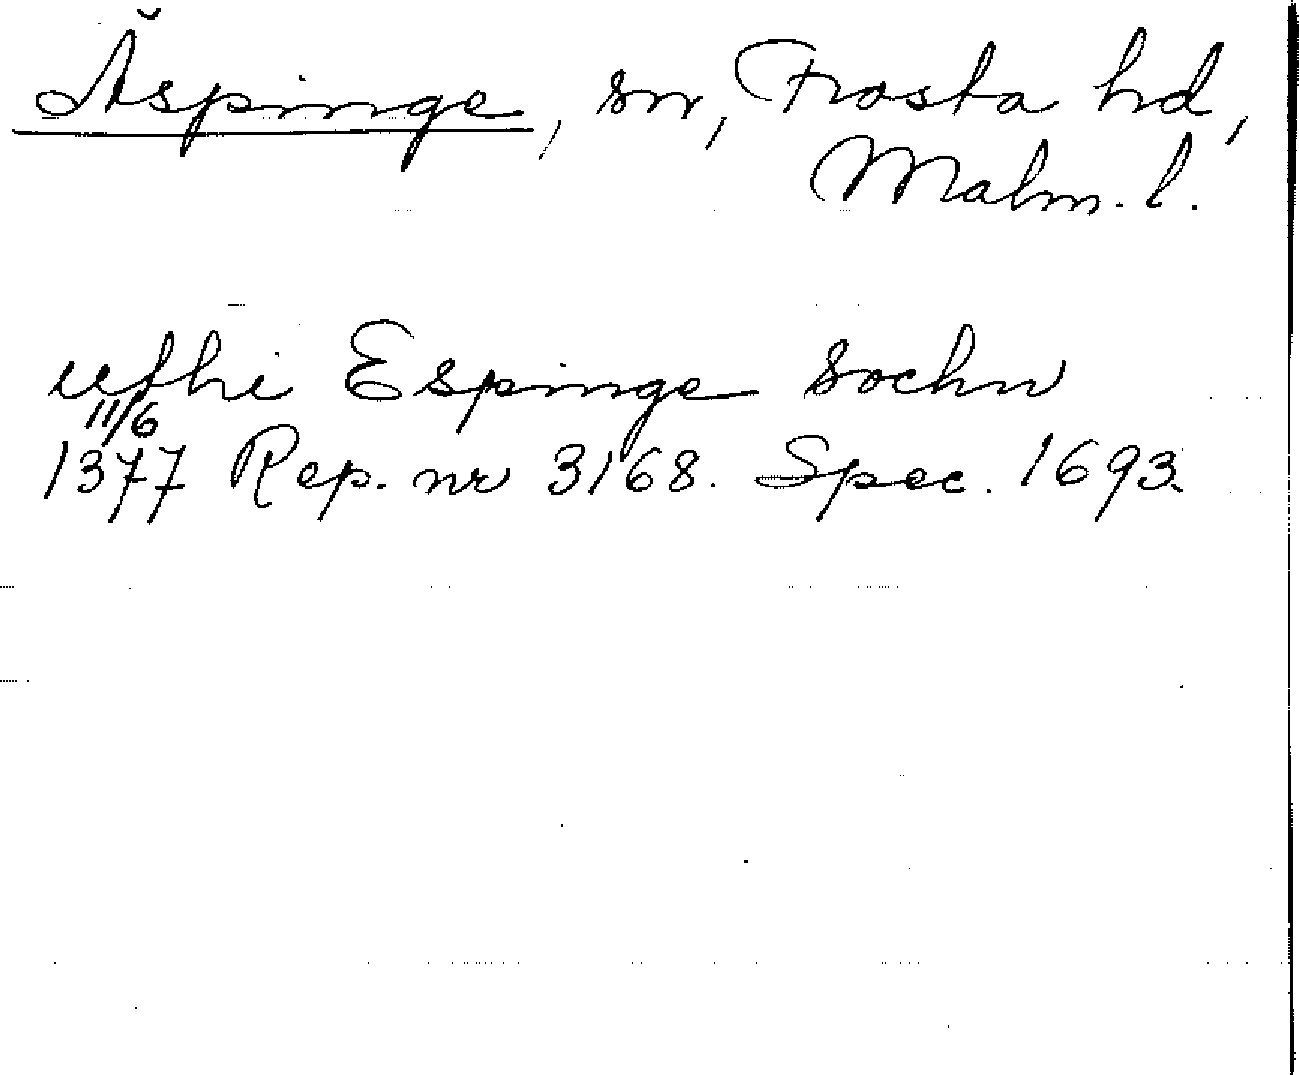 Äspinge, sn, Frosta hd,
Malm. l.
uthi Espinge sochn
11/6
1377 Rep. nr 3168. Spec. 1693.